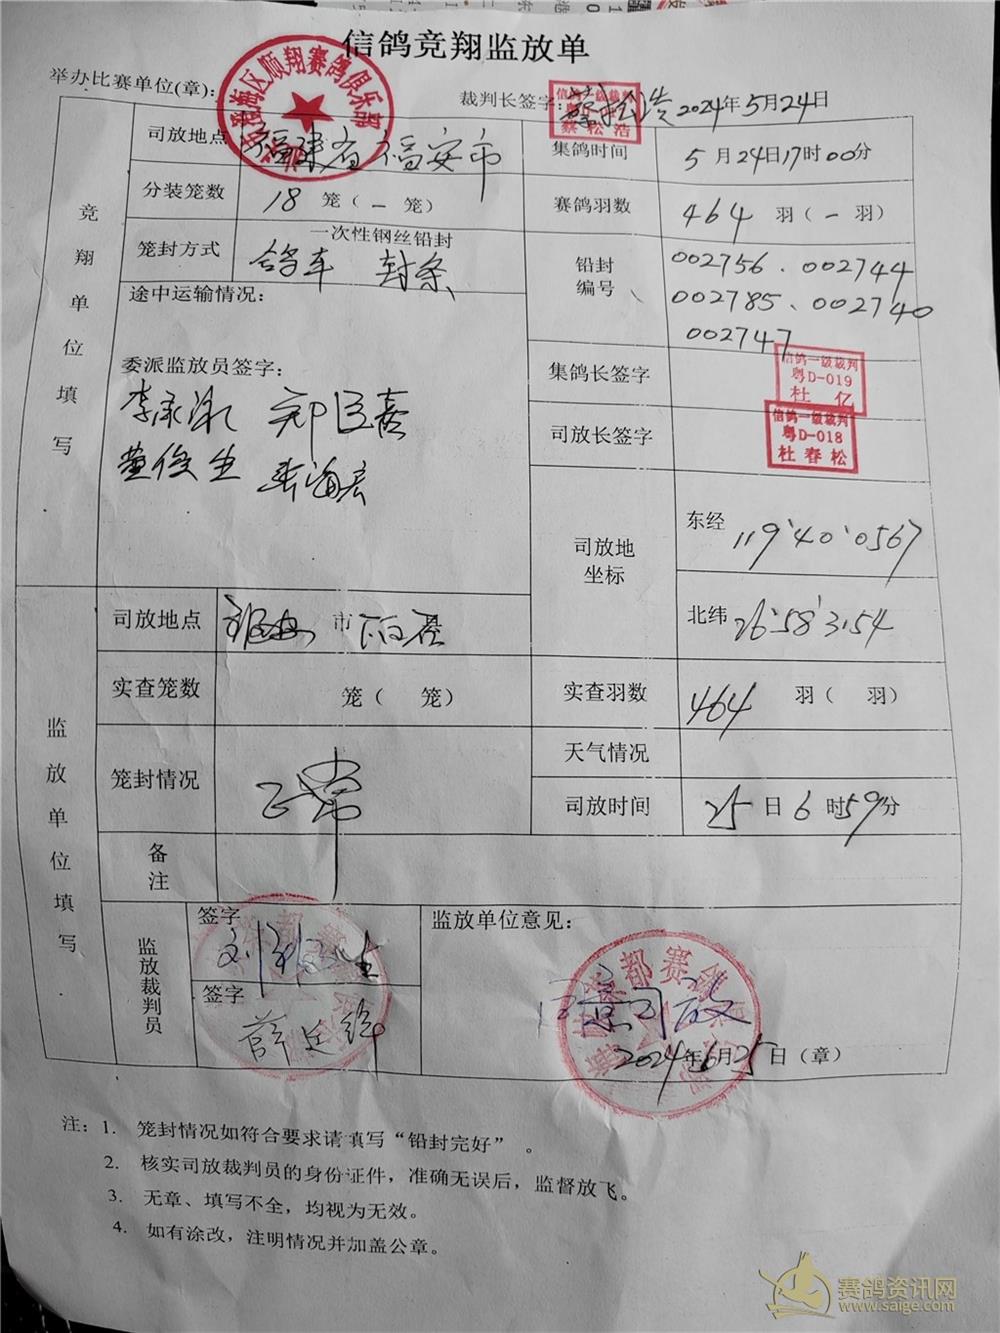 信鸽竞翔监放单
举办比赛单位(章)：
区顺翔赛鸽俱乐部
裁判长签字：
信鸽一级裁判
蔡松浩
2024年5月24日
竞翔单位填写
司放地点 福建省福安市
集鸽时间 5月24日17时00分
分装笼数 18 笼（一笼）
赛鸽羽数 464 羽（一羽）
笼封方式 一次性钢丝铅封
鸽车 封条
铅封编号 002756、002744
002785、002740
002747
途中运输情况：
委派监放员签字：
集鸽长签字
信鸽一级裁判
粤D-019
杜 亿
司放长签字
信鸽一级裁判
粤D-018
杜春松
司放地坐标
东经 119°40'0567
北纬 26°58'3154
监放单位填写
司放地点 市
实查笼数 笼（ 笼）
实查羽数 464 羽（ 羽）
笼封情况 正常
天气情况
司放时间 25日6时59分
备注
监放裁判员
签字
签字
监放单位意见：
同意司放
都赛鸽
2024年6月25日（章）
注：1. 笼封情况如符合要求请填写“铅封完好”。
2. 核实司放裁判员的身份证件，准确无误后，监督放飞。
3. 无章、填写不全，均视为无效。
4. 如有涂改，注明情况并加盖公章。
赛鸽资讯网
www.saige.com